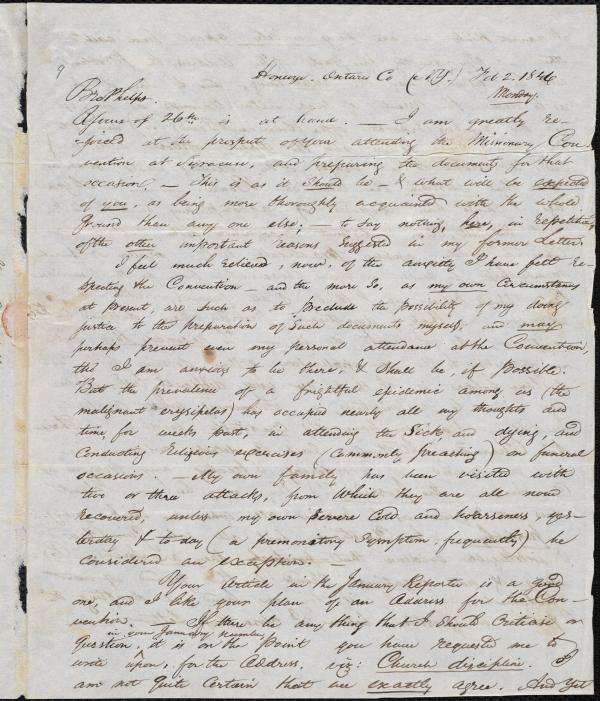 9
Honeoye. Ontario Co (N.Y.) Feb 2. 1846
Monday.
Bro Phelps.
Yours of 26th is at hand. — I am greatly re-
joiced at the prospect of your attending the Missionary Con
vention at Syracuse, and preparing the documents for that
occasion. — This is as it should be — & what will be expected
of you, as being more thoroughly acquainted with the whole
ground than any one else; — to say nothing, here, in repetition,
of the other important reasons suggested in my former Letter.
I feel much relieved, now, of the anxiety I have felt re-
specting the Convention — and the more so, as my own circumstances
at present, are such as to preclude the possibility of my doing
justice to the preparation of such documents myself, and may
perhaps prevent even my personal attendance at the Convention,
tho I am anxious to be there, & shall be, if possible.
But the prevalence of a frightful epidemic among us (the
malignant erysipelas) has occupied nearly all my thoughts and
time, for weeks past, in attending the sick, and dying, and
conducting religious exercises (commonly preaching) on funeral
occasions. — My own family has been visited with
two or three attacks, from which they are all now
recovered, unless my own severe cold and hoarseness, yes-
terday & to-day (a premonitory symptom, frequently) be
considered an exception. —
Your article in the January Reporter is a good
one, and I like your plan of an Address for the Con-
vention. — If there be any thing that I should criticise or
in your January number,
question, it is on the point you have requested me to
write upon, for the Address, viz: Church discipline. I
am not quite certain that we exactly agree. And yet